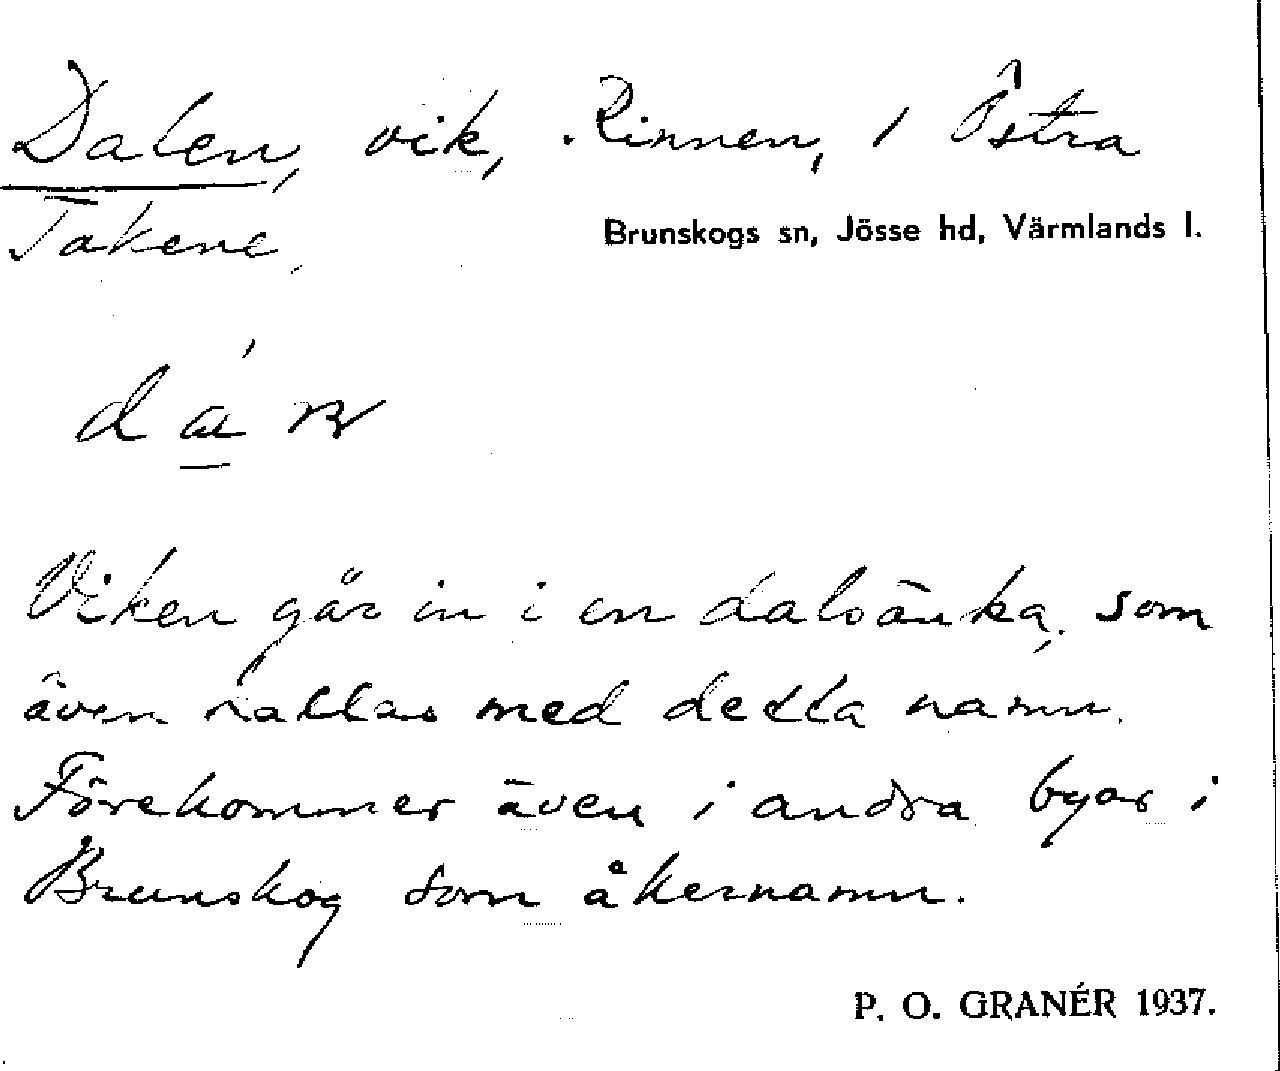 Dalen, vik, Rinnen, i Östra
Takene,
Brunskogs sn, Jösse hd, Värmlands l.
Viken går in i en dalsänka, som
även kallas med detta namn.
Förekommer även i andra byar i
Brunskog som åkernamn.
P. O. GRANÉR 1937.